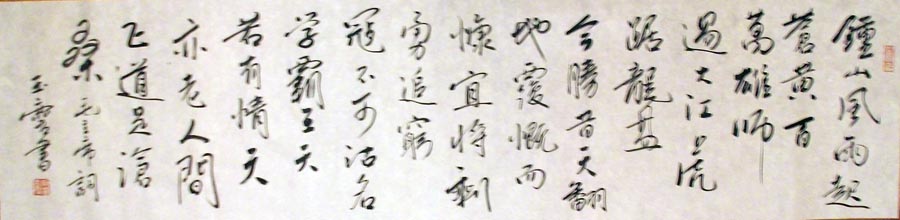 鍾山風雨起
蒼黄百
萬雄师
過大江虎
踞龍盘
今勝昔天翻
地覆慨而
慷宜将剩
勇追窮
寇不可沽名
学霸王天
若有情天
亦老人間
正道是滄
桑 毛主席詞
玉書